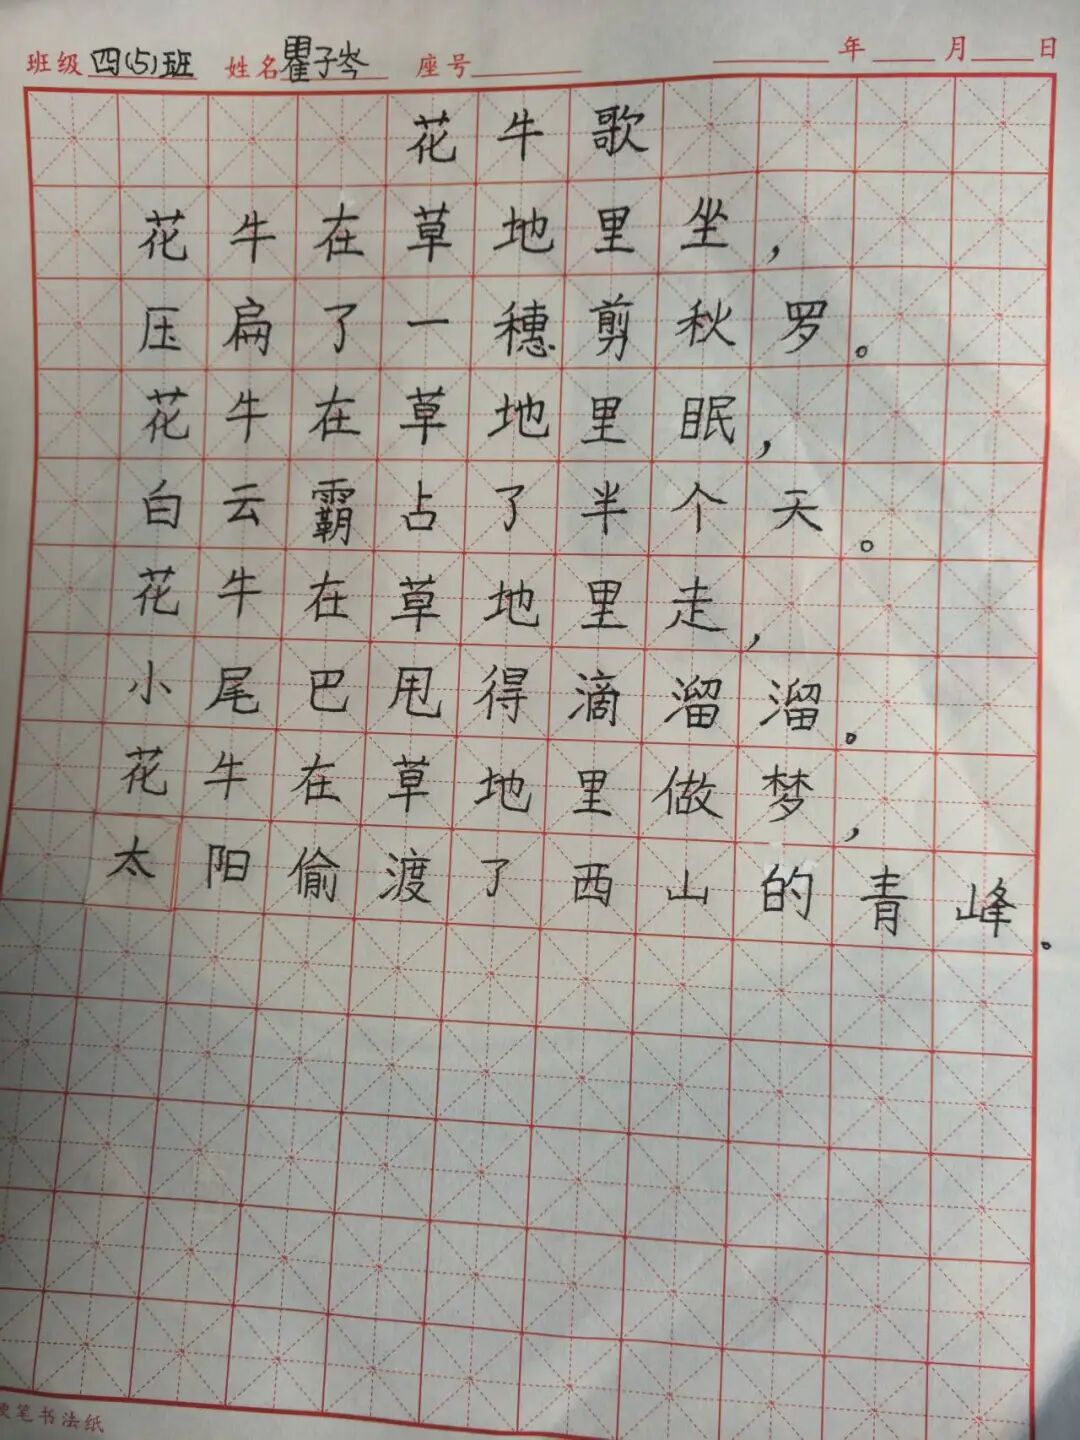 班级 四(5)班 姓名 瞿子岑 座号 年 月 日
花牛歌
花牛在草地里坐，
压扁了一穗剪秋罗。
花牛在草地里眠，
白云霸占了半个天。
花牛在草地里走，
小尾巴甩得滴溜溜。
花牛在草地里做梦，
太阳偷渡了西山的青峰。
硬笔书法纸